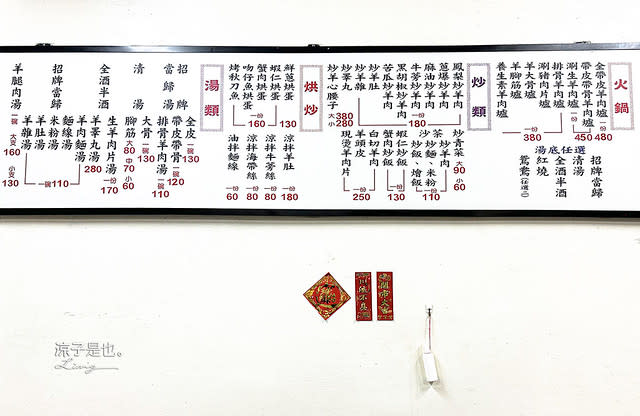 火鍋
全帶皮羊肉爐 一份480
帶皮帶骨羊肉爐 一份450
涮生羊肉爐
排骨羊肉爐
涮豬肉片爐
一份380
羊大骨爐
羊腳筋爐
養生素羊肉爐
湯底任選
招牌當歸
清湯
全酒半酒
紅燒
鴛鴦(任選二)
炒類
鳳梨炒羊肉
蔥爆炒羊肉
麻油炒羊肉
牛蒡炒羊肉
黑胡椒炒羊肉
苦瓜炒羊肉
一份180
炒羊肚
炒羊雜
炒睪丸
炒羊心腰子
大380
小280
炒青菜 大90 小60
炒羊肉
沙茶
炒麵、米粉
炒飯、燴飯
一份110
蝦仁炒飯
蟹肉炒飯
一份130
白切羊肉
羊頭皮
現燙羊肉片
一份250
烘炒
鮮蔥烘蛋 一份130
蝦仁烘蛋
蟹肉烘蛋
吻仔魚烘蛋
一份160
烤秋刀魚
涼拌羊肚 一份180
涼拌牛蒡絲 一份80
涼拌海帶絲 一份80
油拌麵線 一份60
湯類
招牌當歸湯
全皮 一碗130
帶皮帶骨 一碗120
排骨羊肉湯
大骨 一碗130
清湯
腳筋湯 大80 中70 小60
全酒半酒
生羊肉片湯 一份170
羊睪丸湯 一份280
招牌當歸
羊肉麵線
麵線湯
米粉湯
羊肚湯
羊雜湯
一碗110
羊腿肉湯
大支160
小支130
涼子是也。
Living